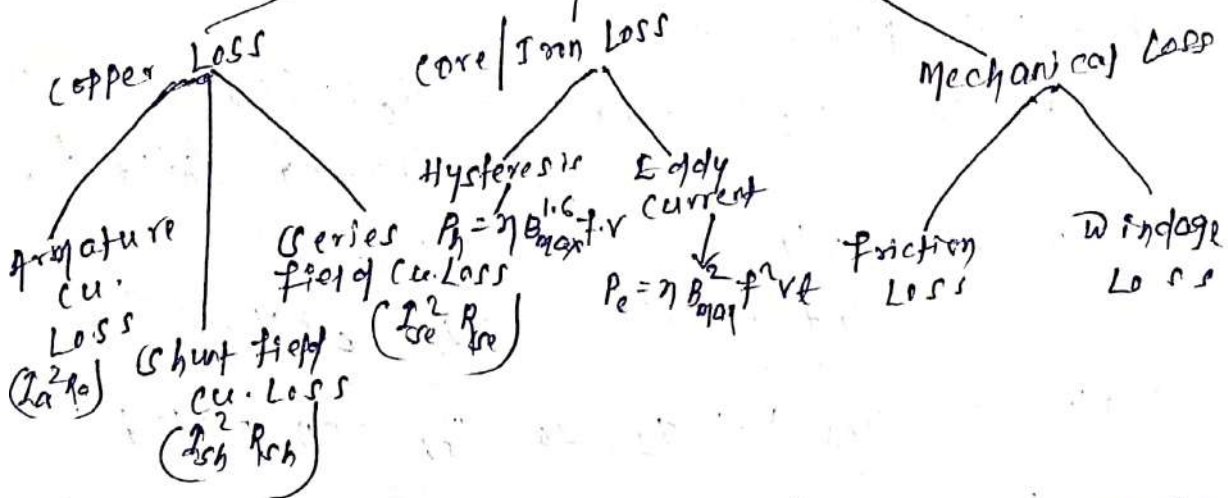 Copper Loss
Core/Iron Loss
Mechanical Loss
Armature
Cu.
Loss
(Ia²Ra)
Shunt field
Cu. Loss
(Ish² Rsh)
Series
field Cu. Loss
(Ise² Rse)
Hysteresis
Ph = η Bmax^1.6 f.v
Eddy
Current
Pe = η Bmax² f² v t
Friction
Loss
Windage
Loss